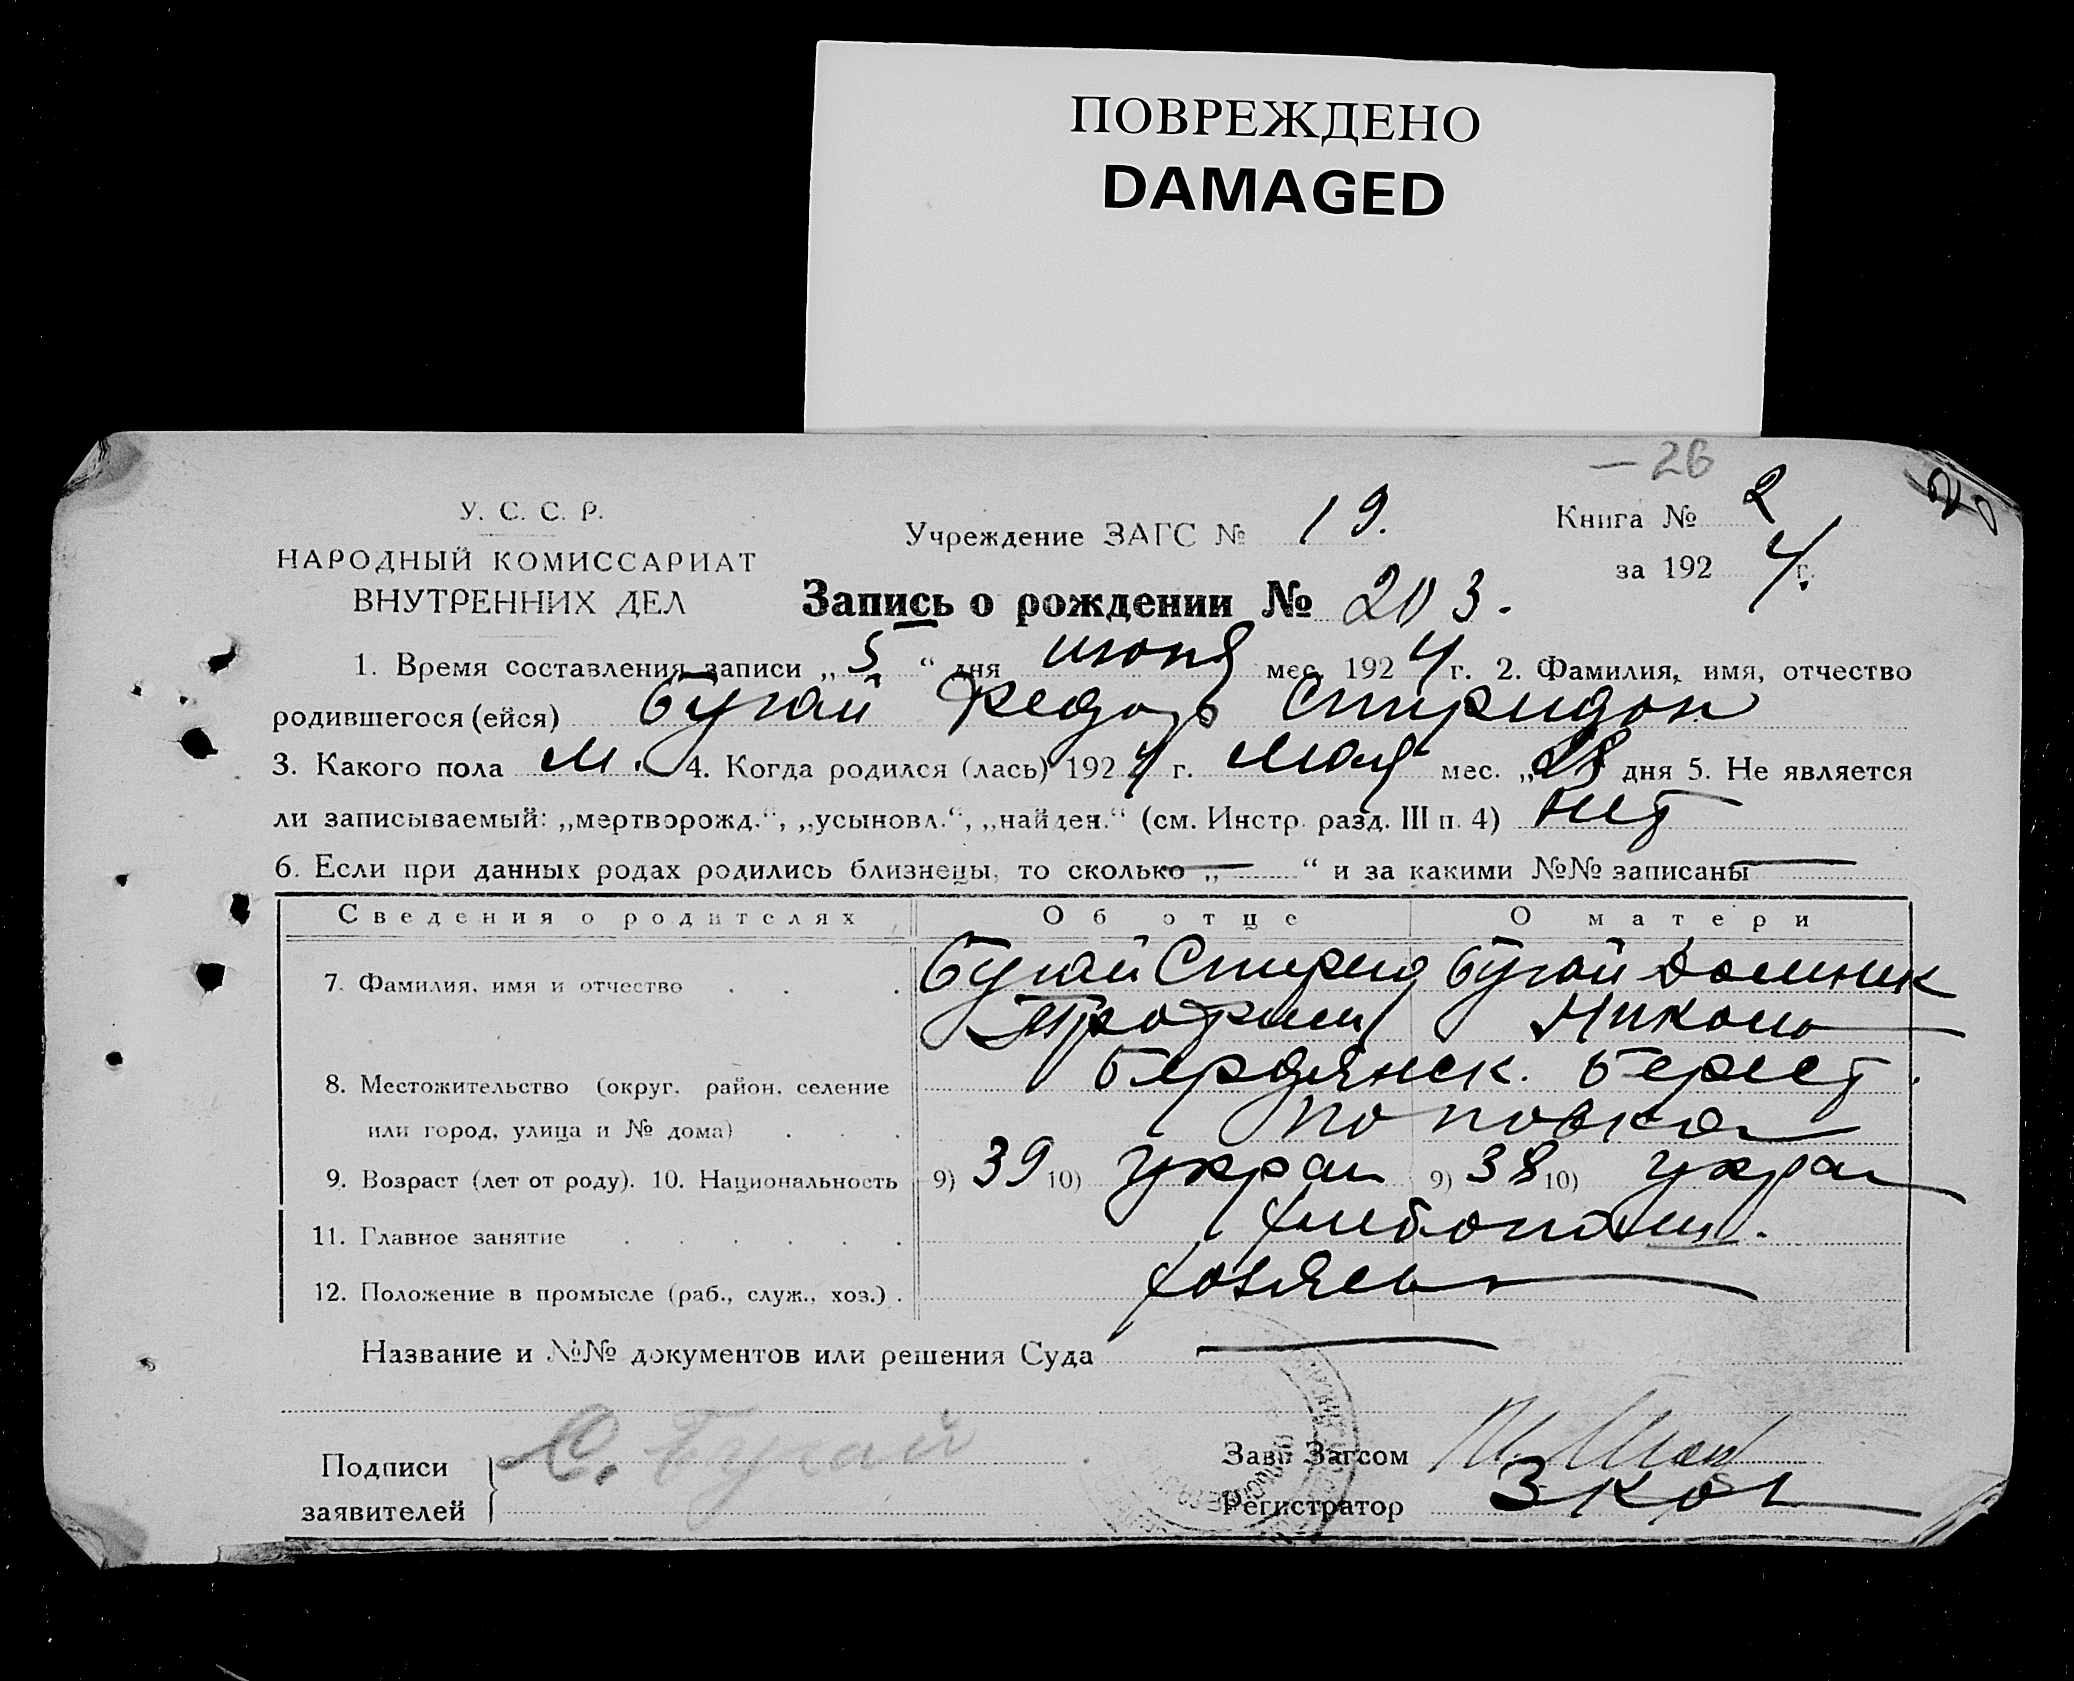 ПОВРЕЖДЕНО
DAMAGED
— 26
У. С. С. Р.
НАРОДНЫЙ КОМИССАРИАТ
ВНУТРЕННИХ ДЕЛ
Учреждение ЗАГС № 19.
Книга № 2
за 1924 г.
Запись о рождении № 203.
1. Время составления записи „5“ дня июня мес. 1924 г. 2. Фамилия, имя, отчество
родившегося (ейся) Бугай Федор Спиридон
3. Какого пола м. 4. Когда родился (лась) 1924 г. мая мес. „28 дня 5. Не является
ли записываемый: „мертворожд.“, „усыновл.“, „найден.“ (см. Инстр. разд. III п. 4) нет
6. Если при данных родах родились близнецы, то сколько „—“ и за какими №№ записаны —
Сведения о родителях Об отце О матери
7. Фамилия, имя и отчество Бугай Спирид Бугай Домник
Трофим Никон
8. Местожительство (округ, район, селение Бердянск. Берест.
или город, улица и № дома) Поповка
9. Возраст (лет от роду). 10. Национальность 9) 39 10) укра 9) 38 10) укра
11. Главное занятие хлебопаш.
12. Положение в промысле (раб., служ., хоз.) хозяева
Название и №№ документов или решения Суда —
Подписи
заявителей
С. Бугай
Зав. Загсом
Регистратор